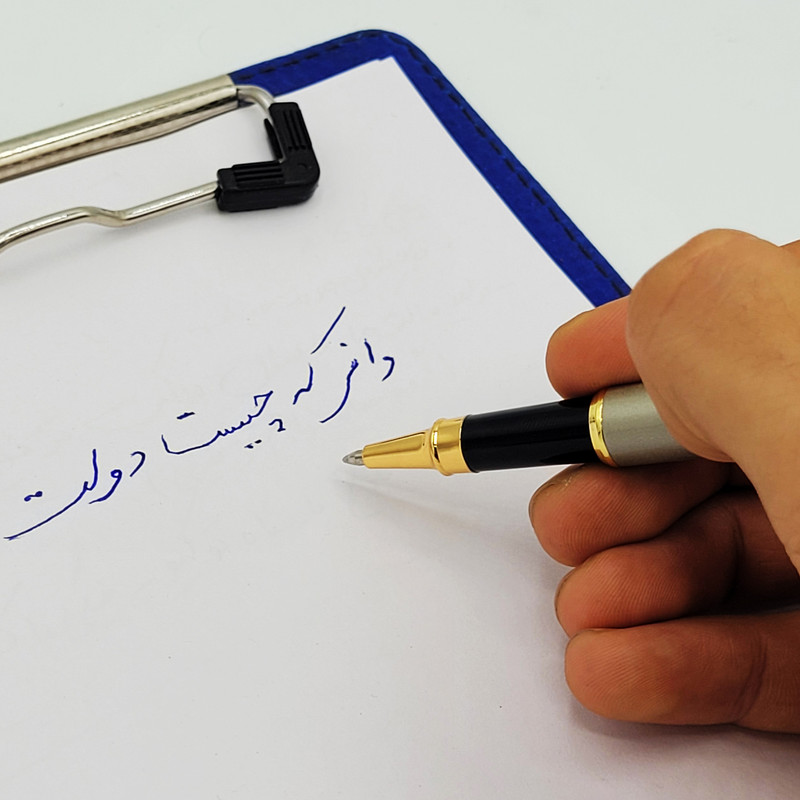 دانی که چیست دولت